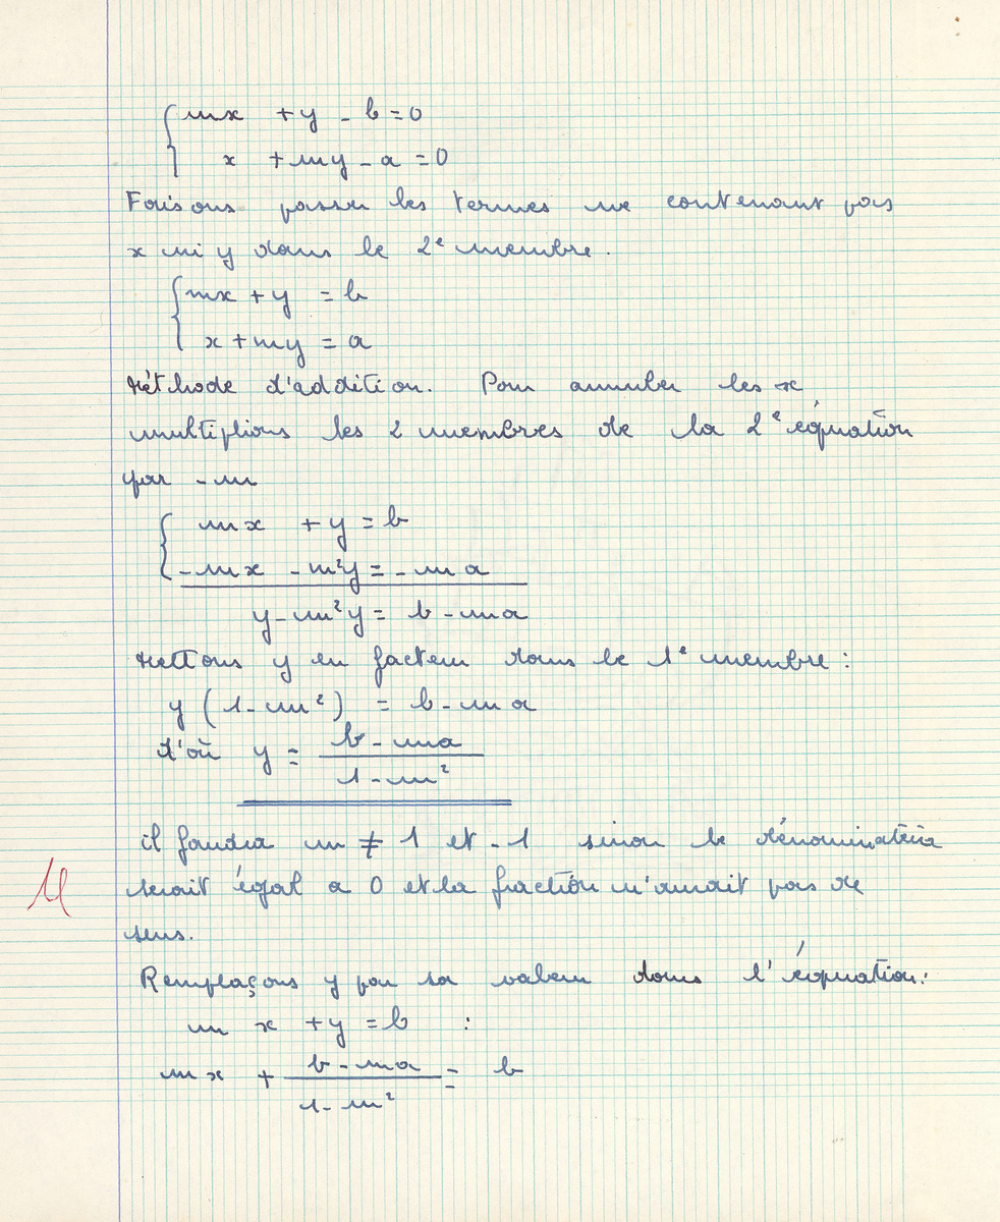 mx + y - b = 0
x + my - a = 0
Faisons passer les termes ne contenant pas
x ni y dans le 2e membre.
mx + y = b
x + my = a
Méthode d'addition. Pour annuler les x
multiplions les 2 membres de la 2e équation
par - m
mx + y = b
-mx - m²y = - ma
y - m²y = b - ma
Mettons y en facteur dans le 1e membre :
y (1 - m²) = b - ma
d'où y = b - ma / 1 - m²
il faudra m ≠ 1 et -1 sinon le dénominateur
serait égal a 0 et la fraction n'aurait pas de
sens.
Remplaçons y par sa valeur dans l'équation :
m x + y = b :
mx + b - ma / 1 - m² = b